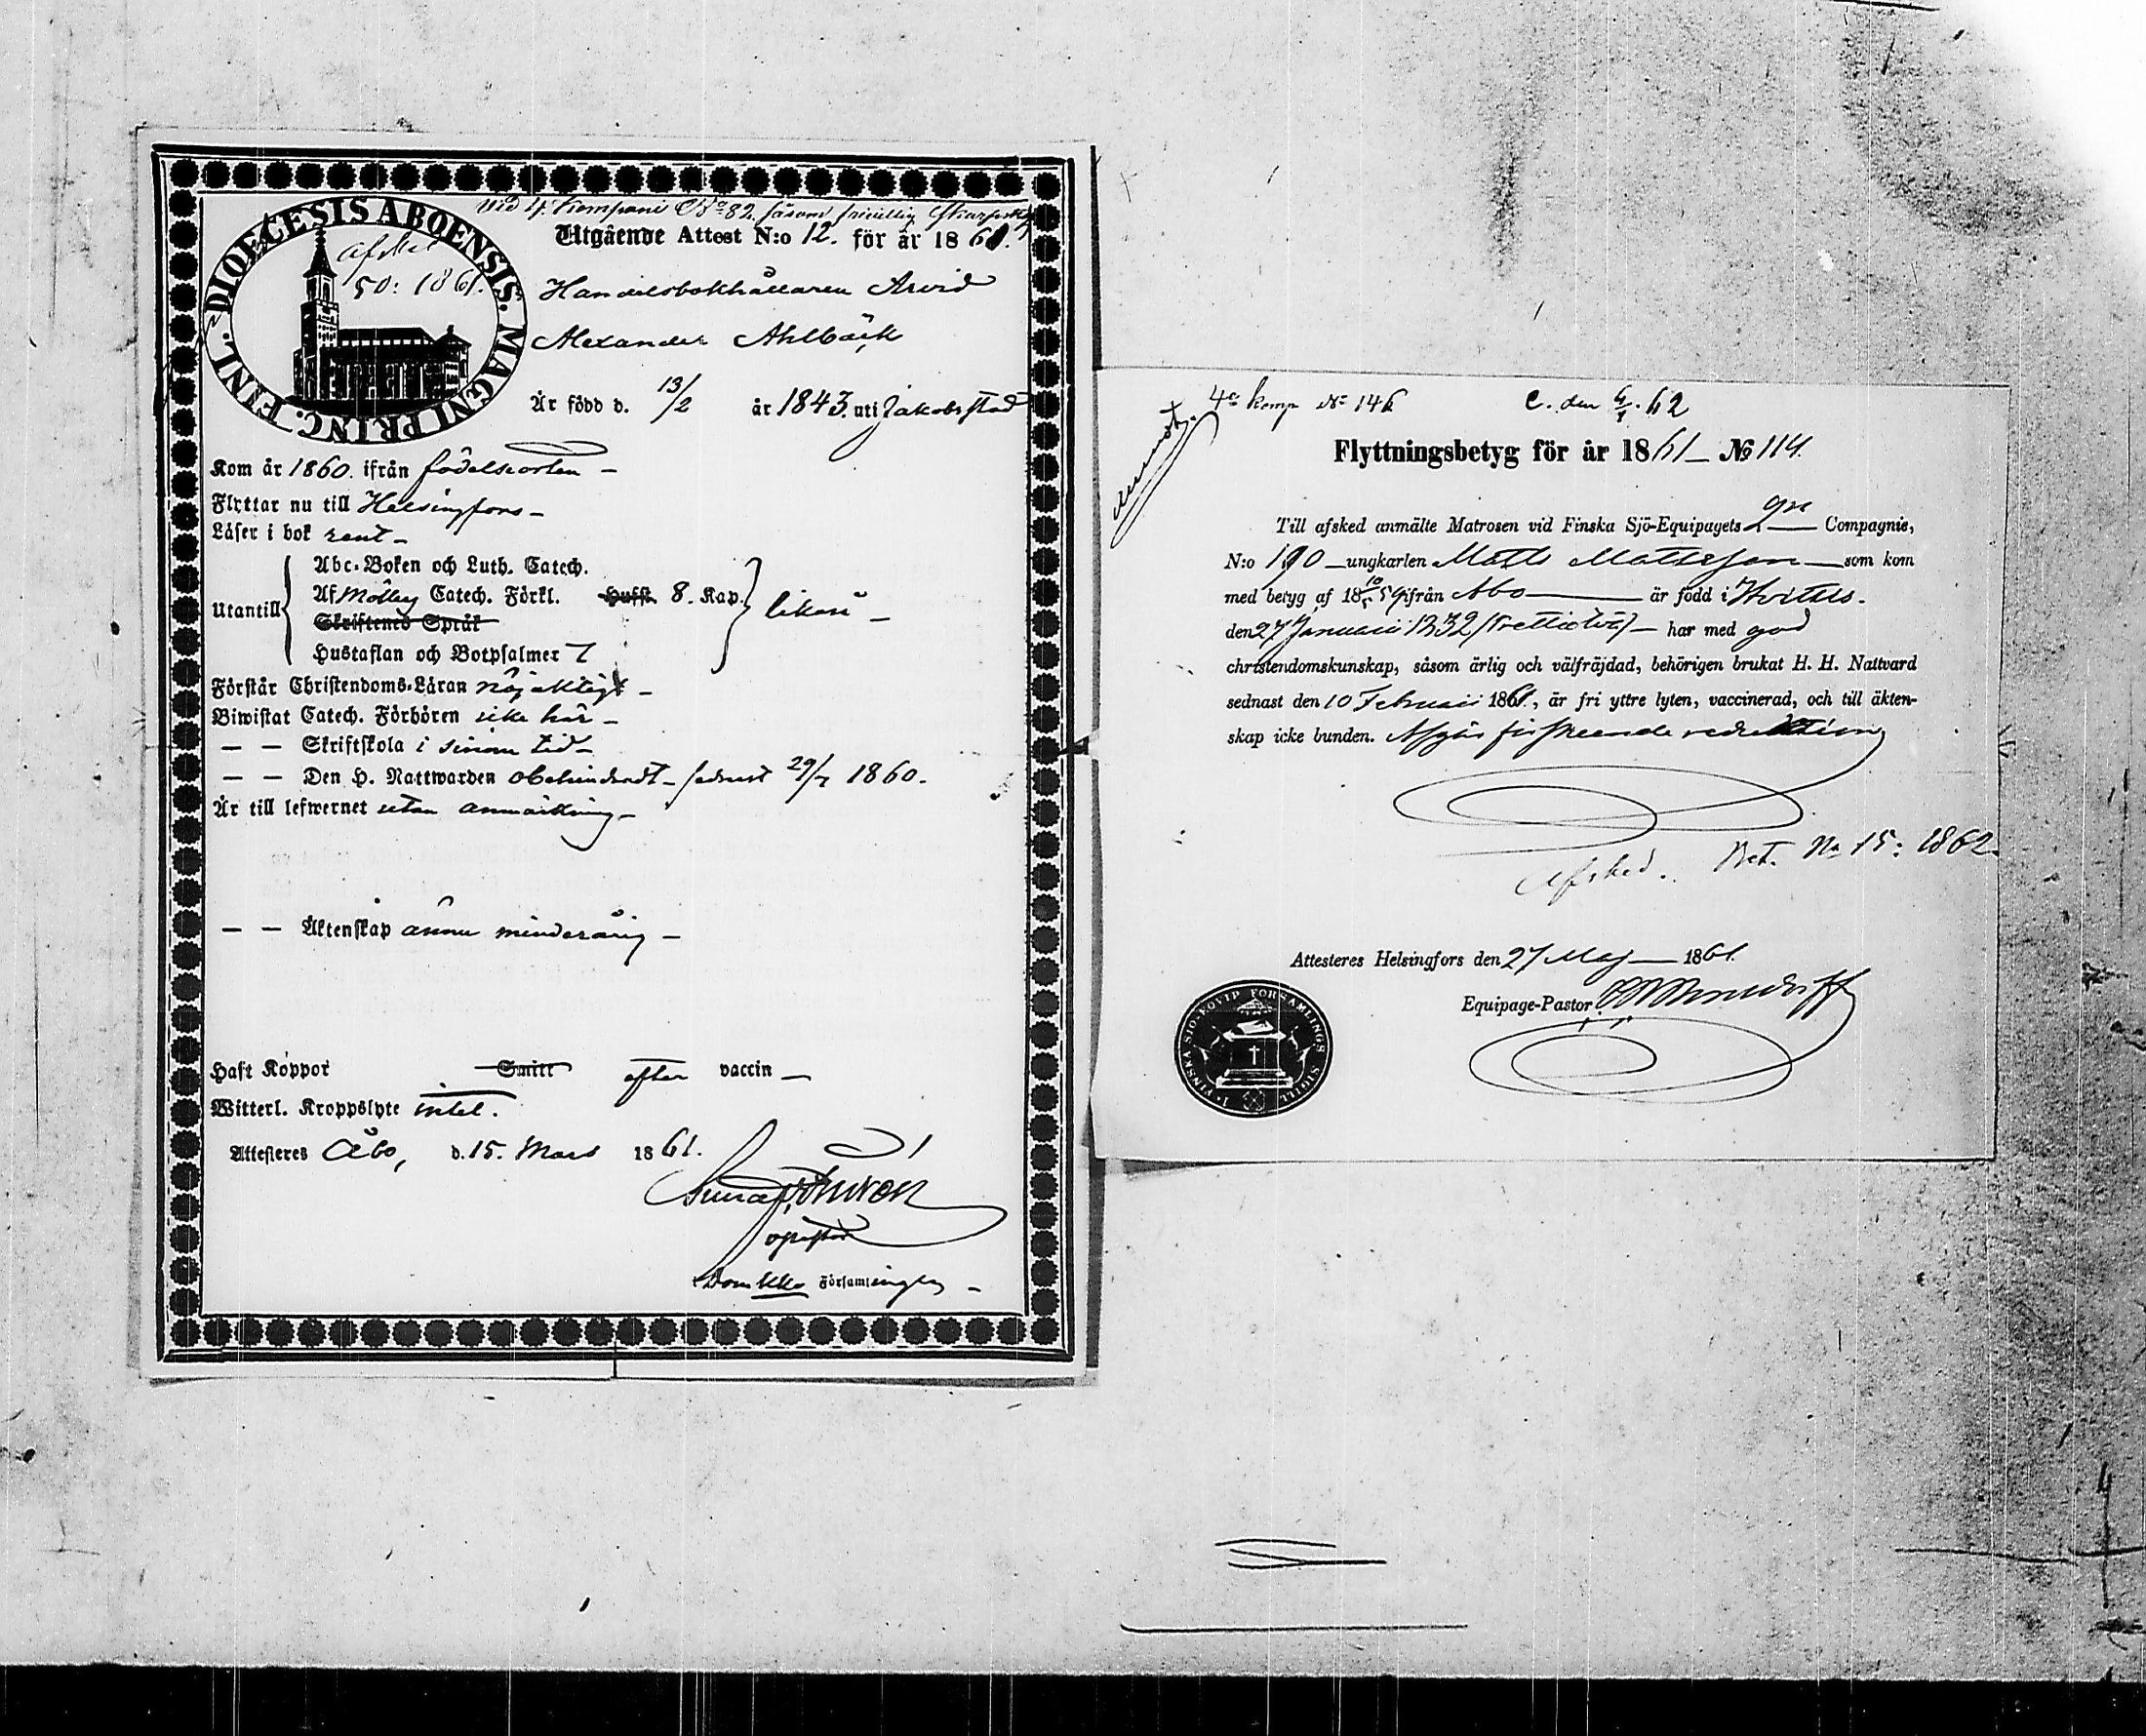 Vid 4. Kompani No 82. såsom frivillig
Utgående Attest N:o 12. för år 1861.
DIOECESIS ABOENSIS. MAGNI PRINC. FINL.
afsked
50: 1861.
Handelsbokhållaren Arvid
Alexander Ahlbäck
Är född d. 13/2 år 1843. uti Jakobstad
Kom år 1860. ifrån födelseorten –
Flyttar nu till Helsingfors –
Läser i bok rent –
Utantill
Abc-Boken och Luth. Catech.
Af Möllers Catech. Förkl. Hufst. 8. Kap.
Skriftenes Språk
Hustaflan och Botpsalmer 7
likaså –
Förstår Christendoms-Läran nöjaktigt –
Biwistat Catech. Förhören icke här –
— — Skriftskola i sinom tid –
— — Den H. Nattwarden obehindradt – sednast 29/7 1860.
Är till lefwernet utan anmärkning –
— — Äktenskap ännu minderårig –
Haft Koppor Smitt efter vaccin –
Witterl. Kroppslyte intet.
Attesteres Åbo, d. 15. Mars 1861.
Domkko Församlingen –
4e komp No 146 c. den 4/1. 62
Flyttningsbetyg för år 1861 – № 114.
Till afsked anmälte Matrosen vid Finska Sjö-Equipagets 2ra Compagnie,
N:o 190 – ungkarlen Matts Mattsson – som kom
med betyg af 18 10/5 59 ifrån Åbo – är född i Hvittis.
den 27 Januarii 1832 (Trettiotvå) – har med god
christendomskunskap, såsom ärlig och välfräjdad, behörigen brukat H. H. Nattvard
sednast den 10 Februarii 1861, är fri yttre lyten, vaccinerad, och till äkten-
skap icke bunden. Afgår för skeende reduktion
Afsked. Bet. No 15: 1862.
Attesteres Helsingfors den 27 Maj – 1861.
Equipage-Pastor.
FINSKA SJÖ-EQVIP FÖRSAMLINGS SIGILL